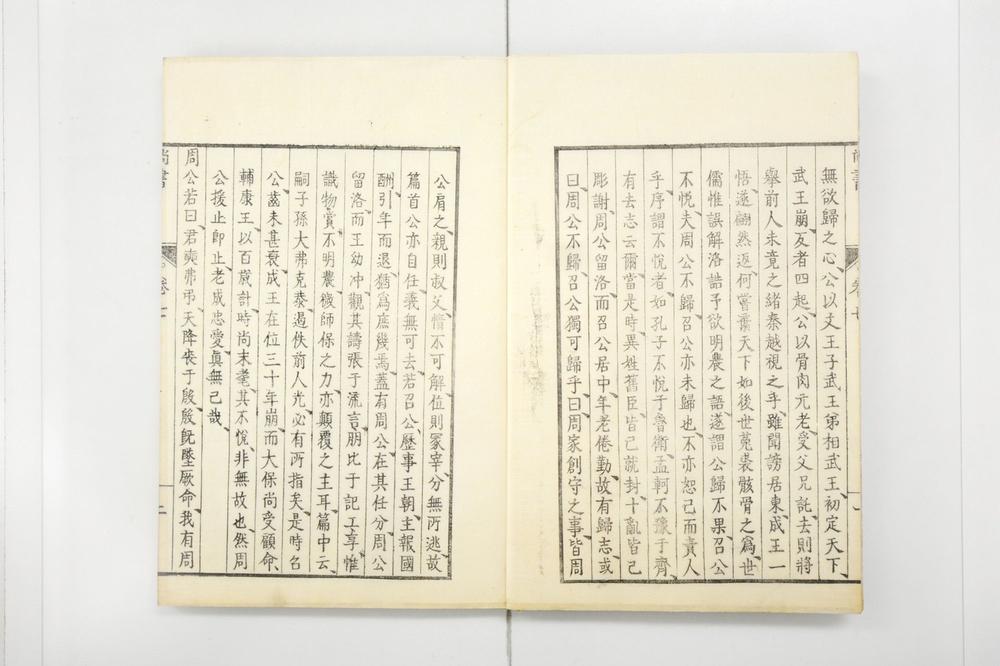 無欲歸之心公以文王子武王弟相武王初定天下
武王崩友者四起公以骨肉元老受父兄託去則將
擧前人未竟之緒秦越視之乎雖聞謗居東成王一
悟遂翩然返何嘗謂天下如後世菟裘骸骨之爲世
儒惟誤解洛誥予欲明農之語遂謂公歸不果召公
不悅夫周公不歸召公亦未歸也不亦恕己而責人
乎序謂不悅者如孔子不悅于魯衛孟軻不豫于齊
有去志云爾當是時異姓舊臣皆已就封十亂皆已
彫謝周公留洛而召公居中年老倦勤故有歸志或
曰周公不歸召公獨可歸乎曰周家創守之事皆周
公肩之親則叔父情不可解位則冡宰分無所逃故
篇首公亦自任義無可去若召公歷事王朝主報國
酬引年而退猶爲庶幾焉蓋有周公在其任分周公
留洛而王幼冲觀其譸張于流言朋比于記工享惟
識物賞不明農微師保之力亦顛覆之主耳篇中云
嗣子孫大弗克恭遏佚前人光必有所指矣是時召
公齒未甚衰成王在位三十年崩而大保尚受顧命
輔康王以百歲計時尚未耄其不悅非無故也然周
公援止卽止老成忠愛眞無已哉
周公若曰君奭弗弔天降喪于殷殷旣墜厥命我有周
尚書
卷七
一
尚書
卷七
二